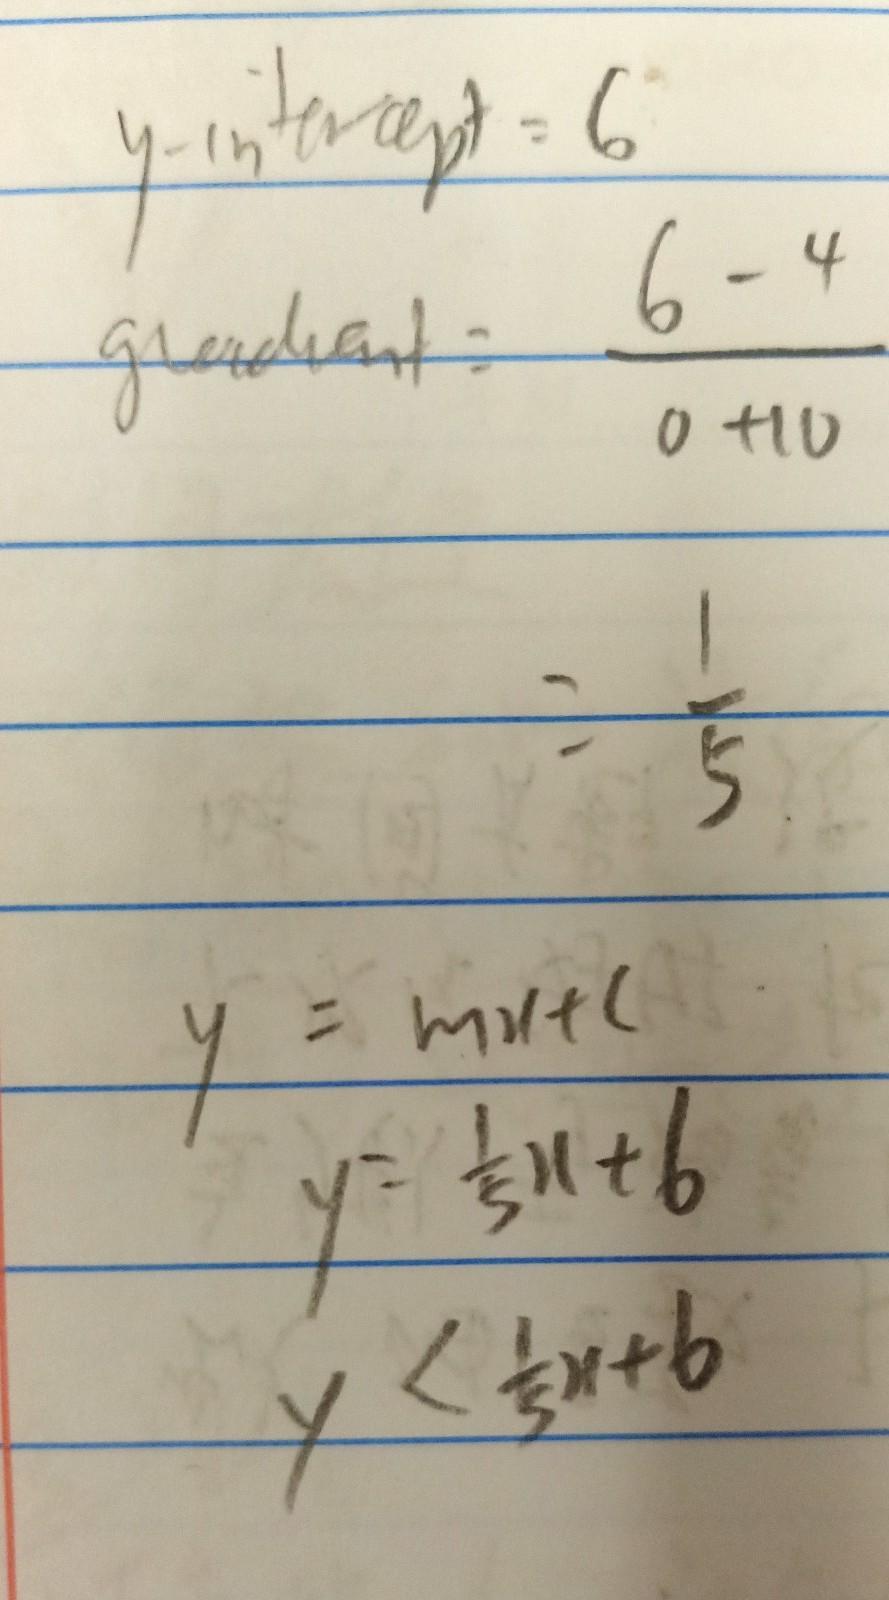 y-intercept = 6
gradient = 6 - 4 / 0 + 10
= 1/5
y = mx + c
y = 1/5 x + 6
y < 1/5 x + 6